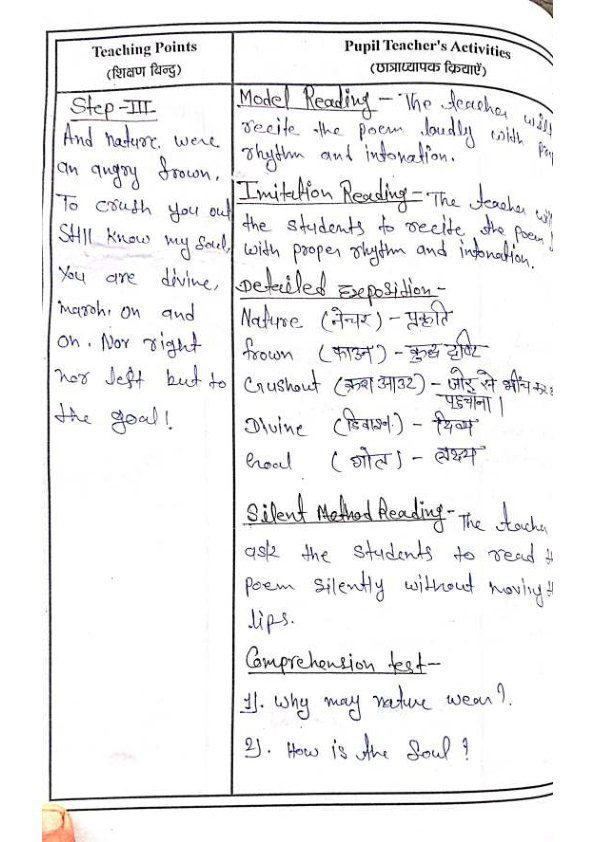 Teaching Points
(शिक्षण बिन्दु)
Step-III
And nature. were
an angry frown,
To crush you out
Still know my soul,
You are divine,
march. on and
on. Nor right
nor left but to
the goal!
Pupil Teacher's Activities
(छात्राध्यापक क्रियाएँ)
Model Reading - The teacher will
recite the poem loudly with
rhythm and intonation.
Imitation Reading - The teacher
the students to recite the poem
with proper rhythm and intonation.
Detailed Exposition -
Nature (नेचर) - प्रकृति
frown (फ्राउन) - क्रुद्ध दृष्टि
Crushout (क्रश आउट) - जोर से भींच कर
पहुचाना।
Divine (डिवाइन) - दिव्य
Goal (गोल) - लक्ष्य
Silent Method Reading - The
ask the students to read
poem silently without moving
lips.
Comprehension test -
1). Why may nature wear?.
2). How is the Soul?